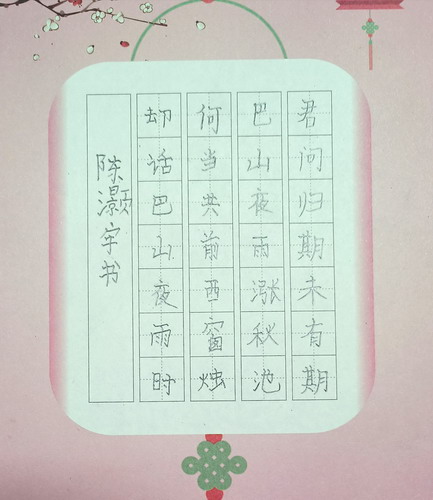 君问归期未有期
巴山夜雨涨秋池
何当共前西窗烛
却话巴山夜雨时
陈灏宇书